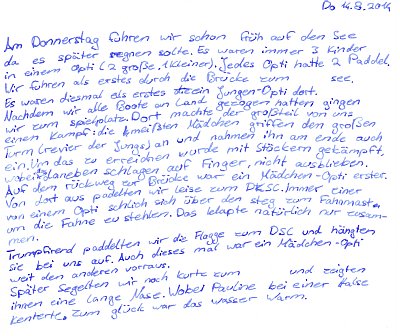 Do 14.8.2014
Am Donnerstag fuhren wir schon früh auf den See
da es später regnen solte. Es waren immer 3 Kinder
in einem Opti (2 große, 1 kleiner). Jedes Opti hatte 2 Paddel.
Wir fuhren als erstes durch die Brücke zum see.
Es waren diesmal als erstes die Jungen-Opti dort.
Nachdem wir alle Boote an Land gezogen hatten gingen
wir zum spielplatz. Dort machte der großteil von uns
einen Kampf: die meißten Mädchen griffen den großen
Turm (revier der Jungs) an und nahmen ihn am ende auch
ein. Um das zu erreichen wurde mit Stöckern gekämpft,
schlagen auf Finger, nicht ausblieben.
Auf dem rückweg zur Brücke war ein Mädchen-Opti erster.
Von dort aus padelten wir leise zum DKSC. Immer einer
von einem Opti schlich sich über den steg zum Fahnmast
um die Fahne zu stehlen. Das klapte natürlich nur zusam-
men.
paddelten wir die Flagge zum DSC und hängten
sie bei uns auf. Auch dieses mal war ein Mädchen-Opti
weit den anderen vorraus.
Später segelten wir noch kurtz zum und zeigten
ihnen eine lange Nase. Wobei Pauline bei einer halse
kenterte. Zum glück war das wasser warm.